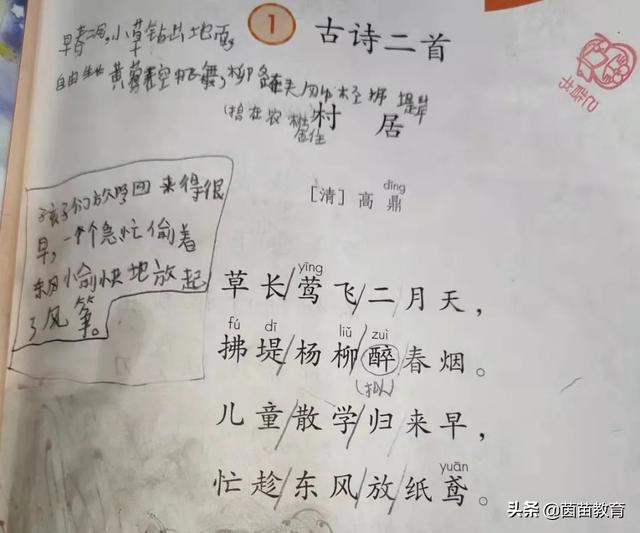 1 古诗二首
早春二月,小草钻出地面,
自由
黄莺 空飞舞,柳
堤岸
(指在农村居住
村居
dǐng
[清] 高鼎
孩子们放学回来得很
早,一个个急忙偷着
东风愉快地放起
了风筝。
yīng
草长/莺飞/二月天,
fú dī liǔ zuì
拂堤/杨柳/醉/春烟。
(拟人)
儿童/散学/归来早,
yuān
忙趁/东风/放纸鸢。
头条 @茵苗教育